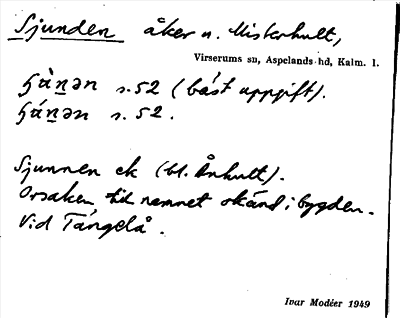 Sjunden åker u. Misterhult,
Virserums sn, Aspelands hd, Kalm. l.
s.52 (bäst uppgift).
s.52.
Sjunnen ek (bl. Århult).
Orsaken till namnet okänd i bygden.
Vid Tångelå.
Ivar Modéer 1949